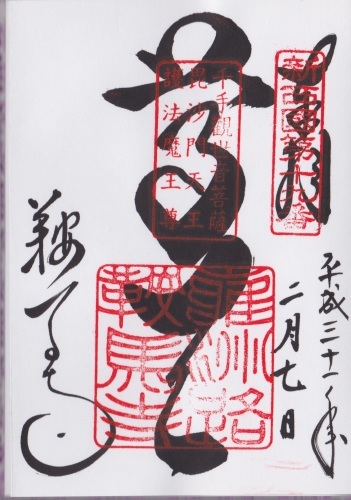 奉拝
新西國第十九番
平成三十一年
二月七日
尊天
千手觀世音菩薩
毘沙門天王
護法魔王尊
鞍馬寺
鞍馬寺